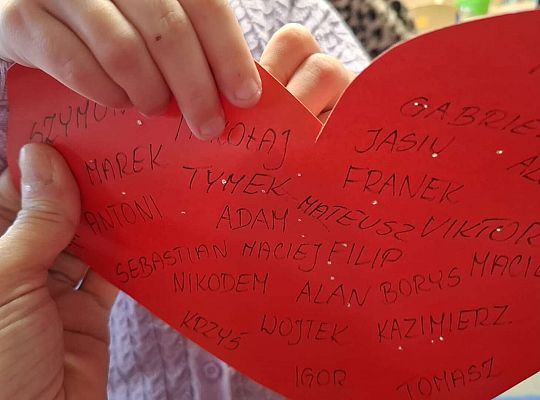 GABRIE
JASIU
MAREK
TYMEK
FRANEK
ANTONI
ADAM
MATEUSZ
VIKTOR
SEBASTIAN
MACIEJ
FILIP
NIKODEM
ALAN
BORYS
KRZYŚ
WOJTEK
KAZIMIERZ.
IGOR
TOMASZ